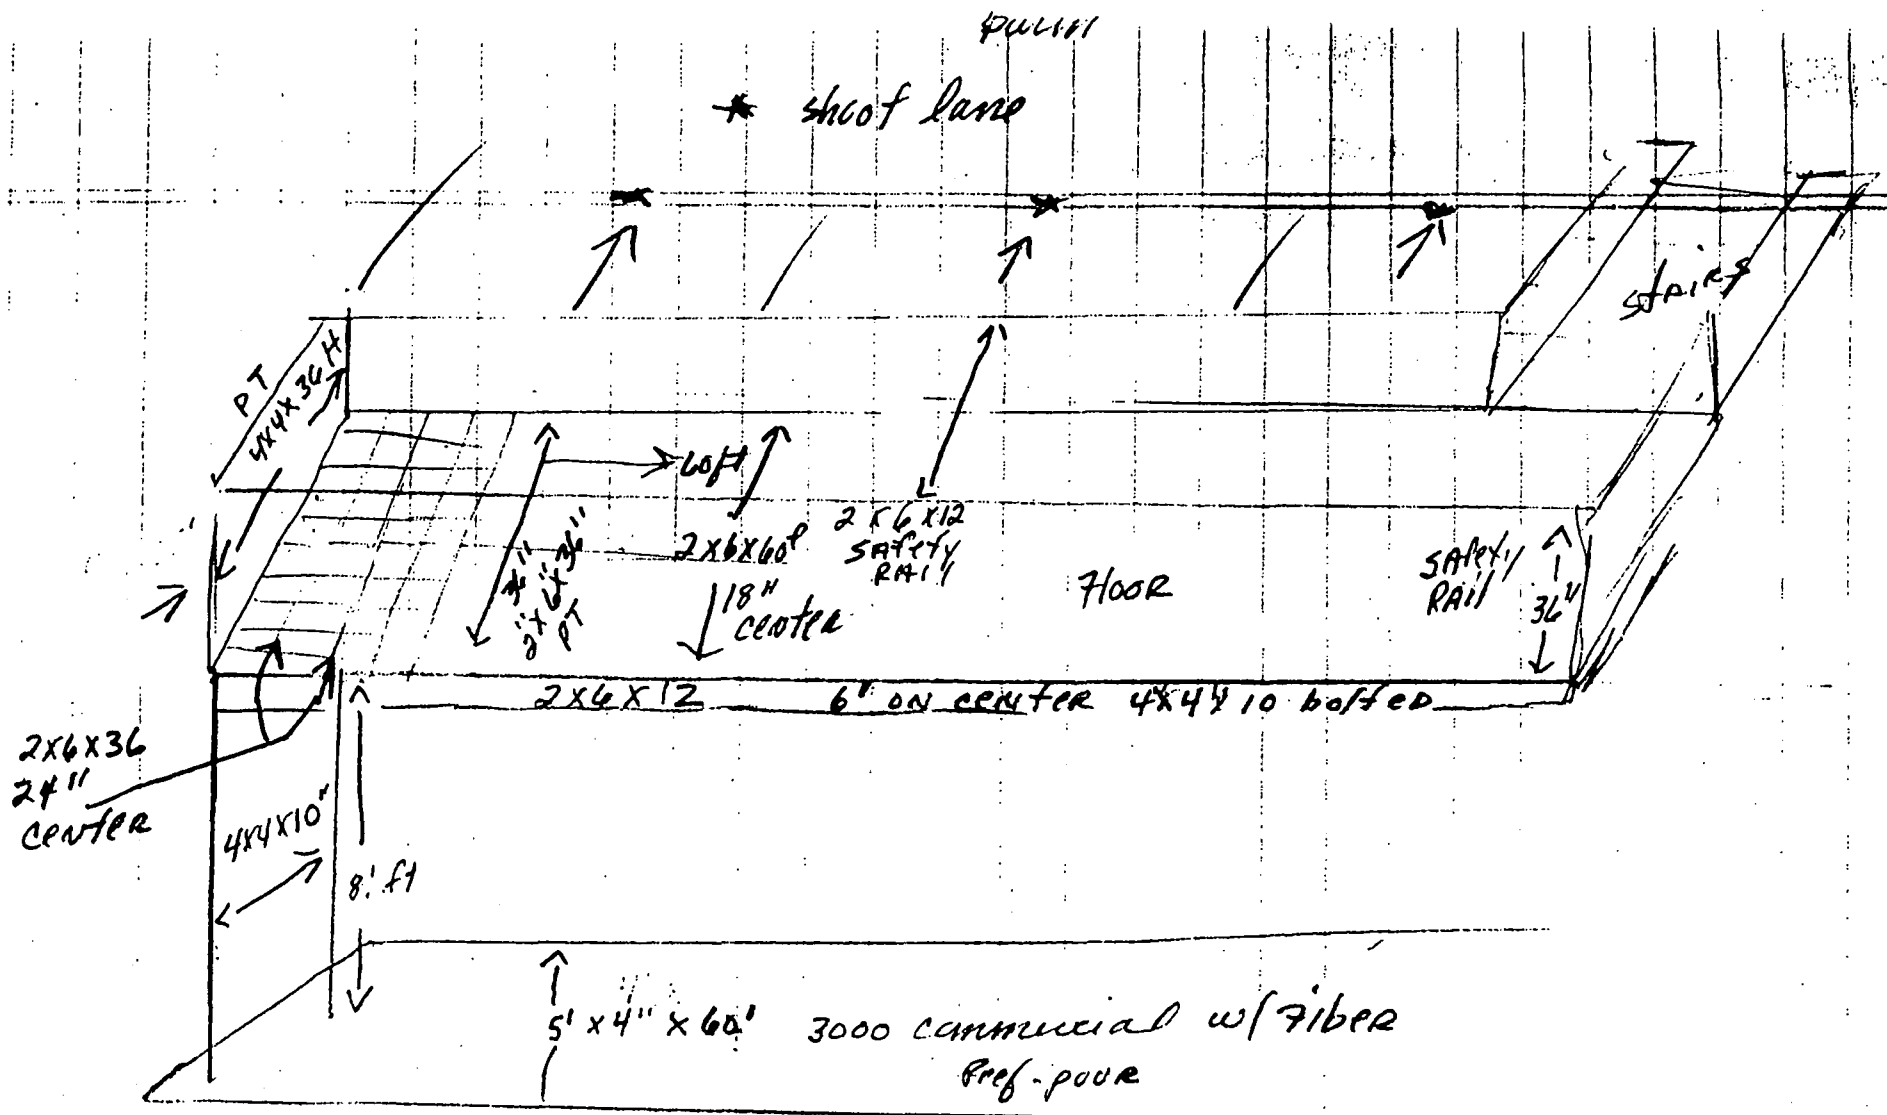 * shoot lane
stairs
PT
4x4x36 H
60ft
36"
2"x6"x36"
PT
2x6x60'
18"
center
2 x 6 x 12
SAfety
RAil
FlooR
SAfety
RAil
36"
2x6x12 6' ON CENTER 4"x4"x10 bolted
2x6x36
24"
center
4x4x10'
8' ft
5' x 4" x 60' 3000 commercial w/ Fiber
Pref-pour